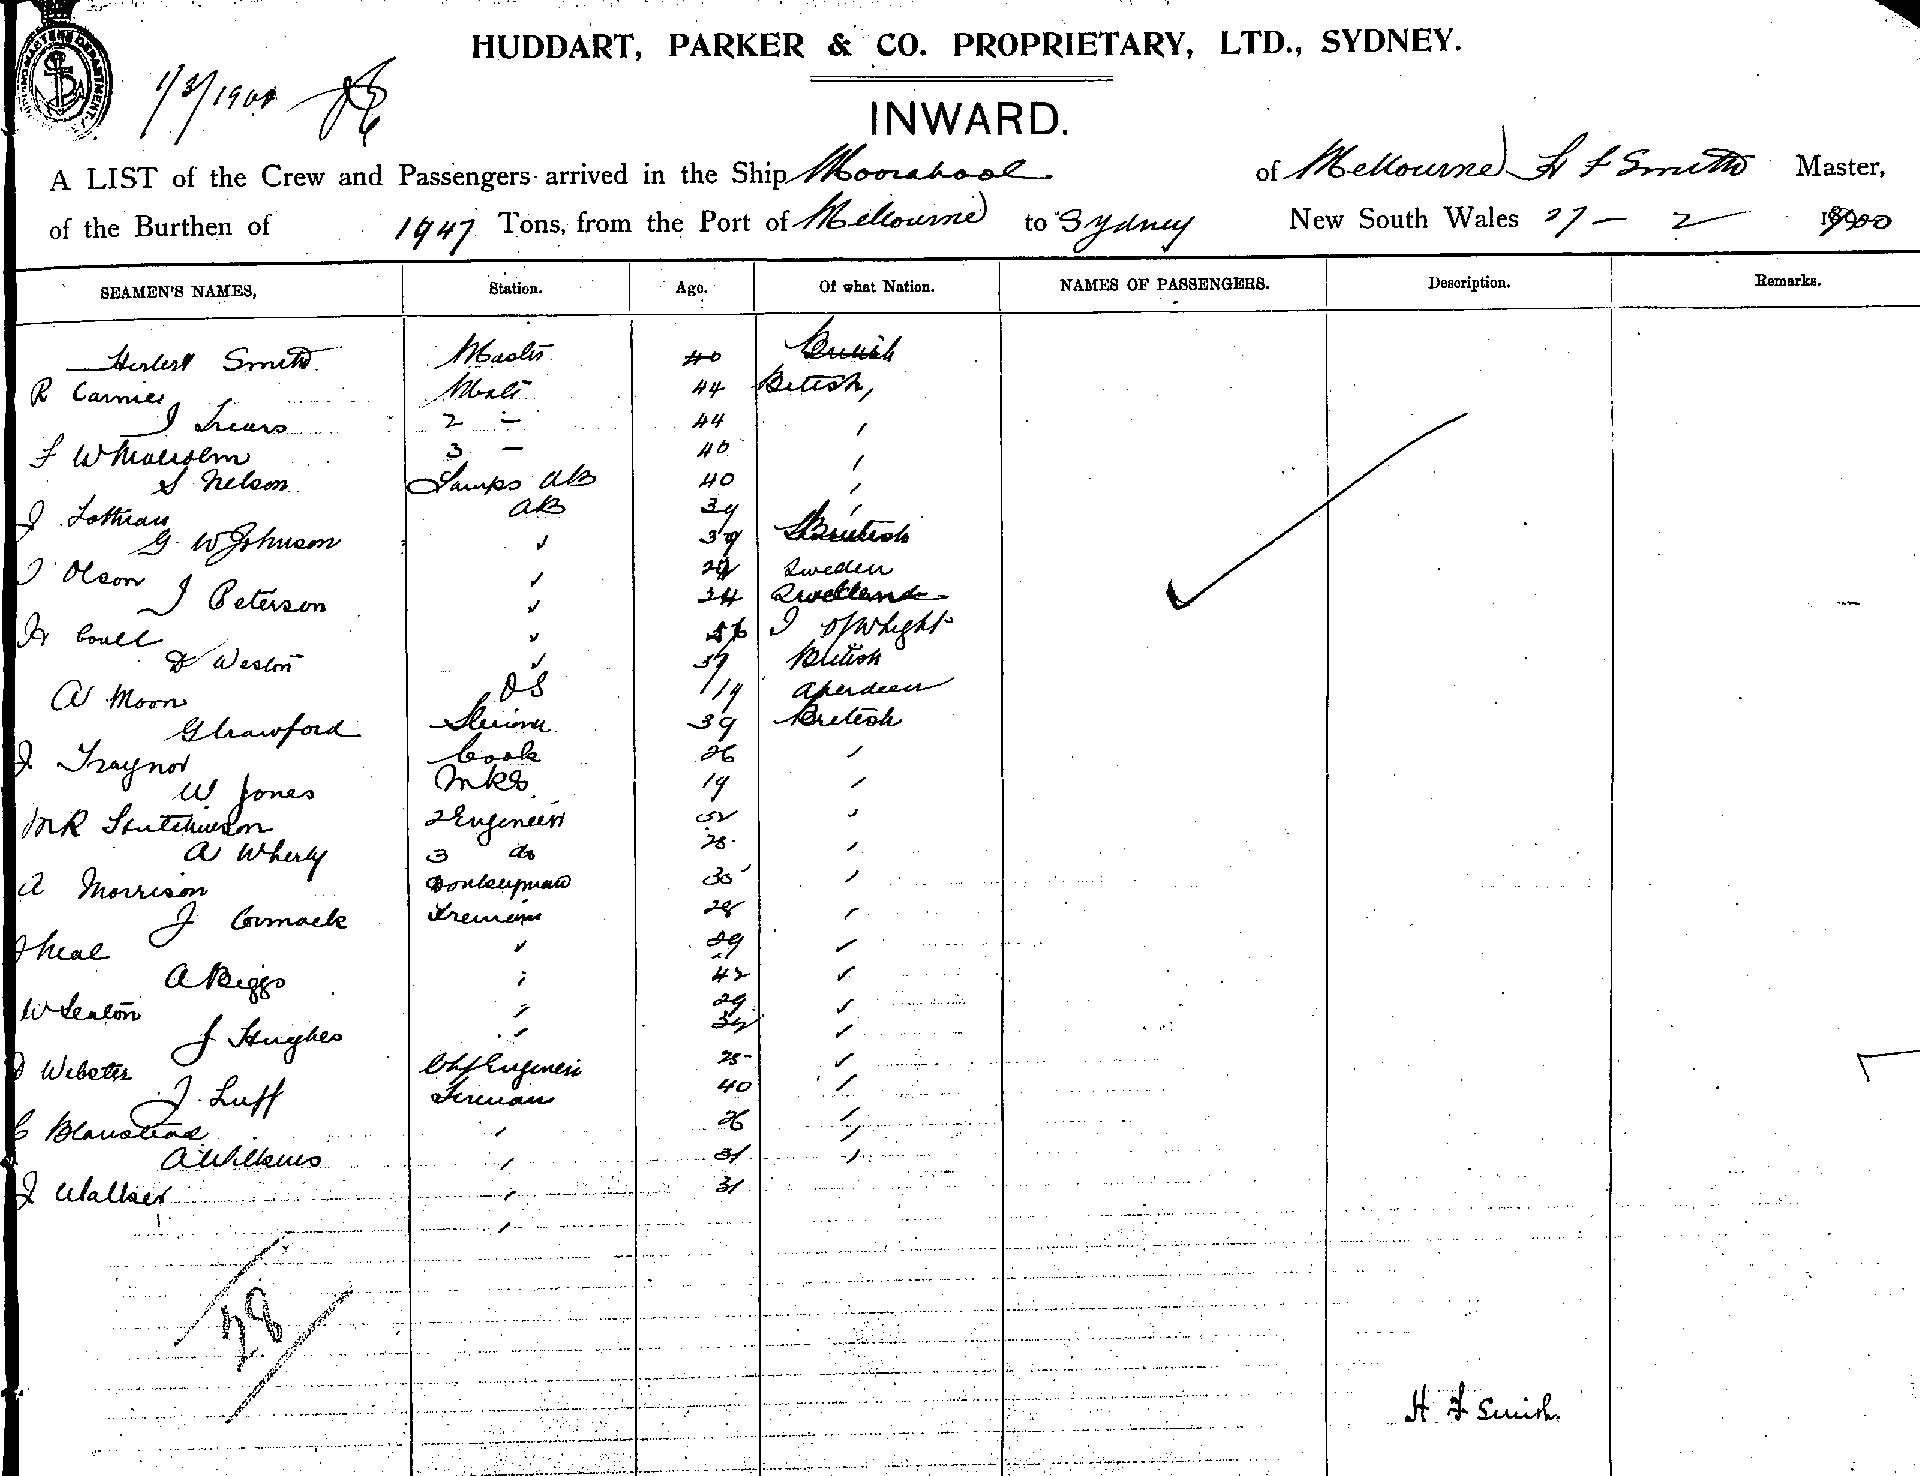 HUDDART, PARKER & CO. PROPRIETARY, LTD., SYDNEY.
1/3/1900
INWARD.
A LIST of the Crew and Passengers arrived in the Ship Moorabool of Melbourne H F Smith Master,
of the Burthen of 1947 Tons, from the Port of Melbourne to Sydney New South Wales 27 - 2 1900
SEAMEN'S NAMES, Station. Age. Of what Nation. NAMES OF PASSENGERS. Description. Remarks.
Herbert Smith Master 40 British
R Carnie Mate 44 British,
J 2 - 44 '
F W Malcolm 3 - 40 '
S Nelson Lamps AB 40 '
J Lothian AB 39 '
G W Johnson 39 British
J Olson Sweden
J Peterson 34
Coull I of Whight
D Weston 37 British
A Moon OS 19 Aperdeen
G Crawford 39 British
J Traynor Cook 26 '
W Jones 19 '
M R Hutchinson 2 Engineer '
A Wherly 3 do 25 '
A Morrison Donkeyman 35 '
J Cormack Fireman 28 '
J Neal 29
A Biggs 42
W Seaton 29
J Hughes
D Webster Chf Engineer 25
J. Luff Fireman 40
26
A Wilkins 31
J Walker 31
28
H F Smith.